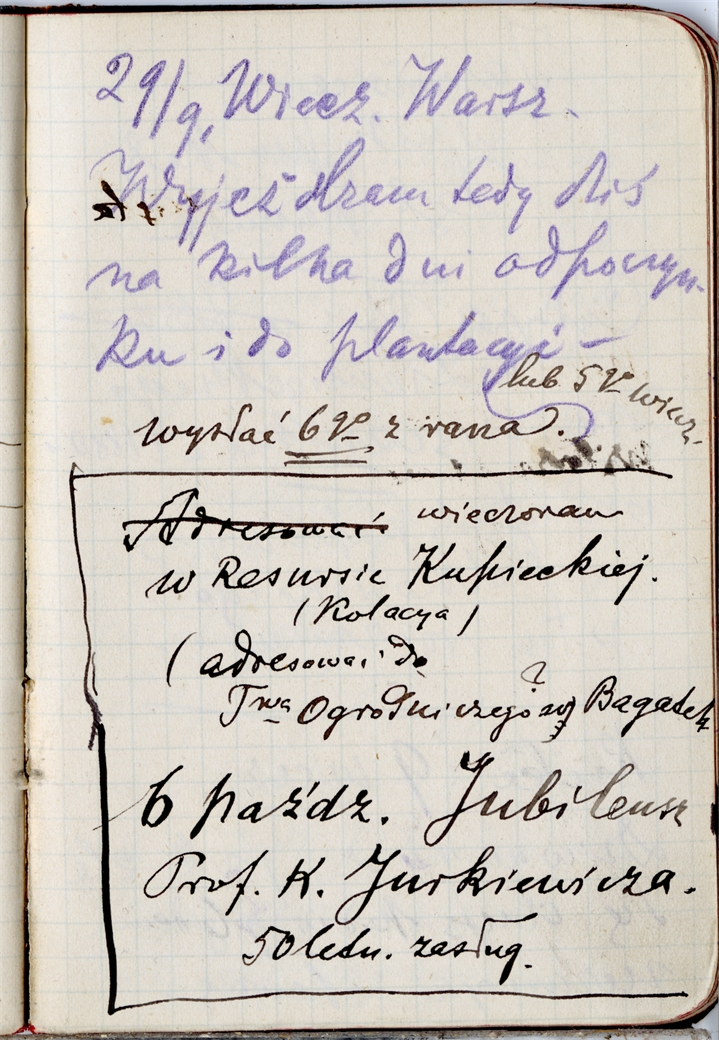 29/9, Wiecz. Warsz.
Wyjeżdżam tedy dziś
na kilka dni odpoczyn-
ku i do plantacyi –
lub 5go wiecz.
wysłać 6go z rana.
Adresować wieczorem
w Resursie Kupieckiej.
(Kolacya)
(adresować do
Twa Ogrodniczego ? Bagatela
6 paźdz. Jubileusz
Prof. K. Jurkiewicza.
50 letn. zasług.